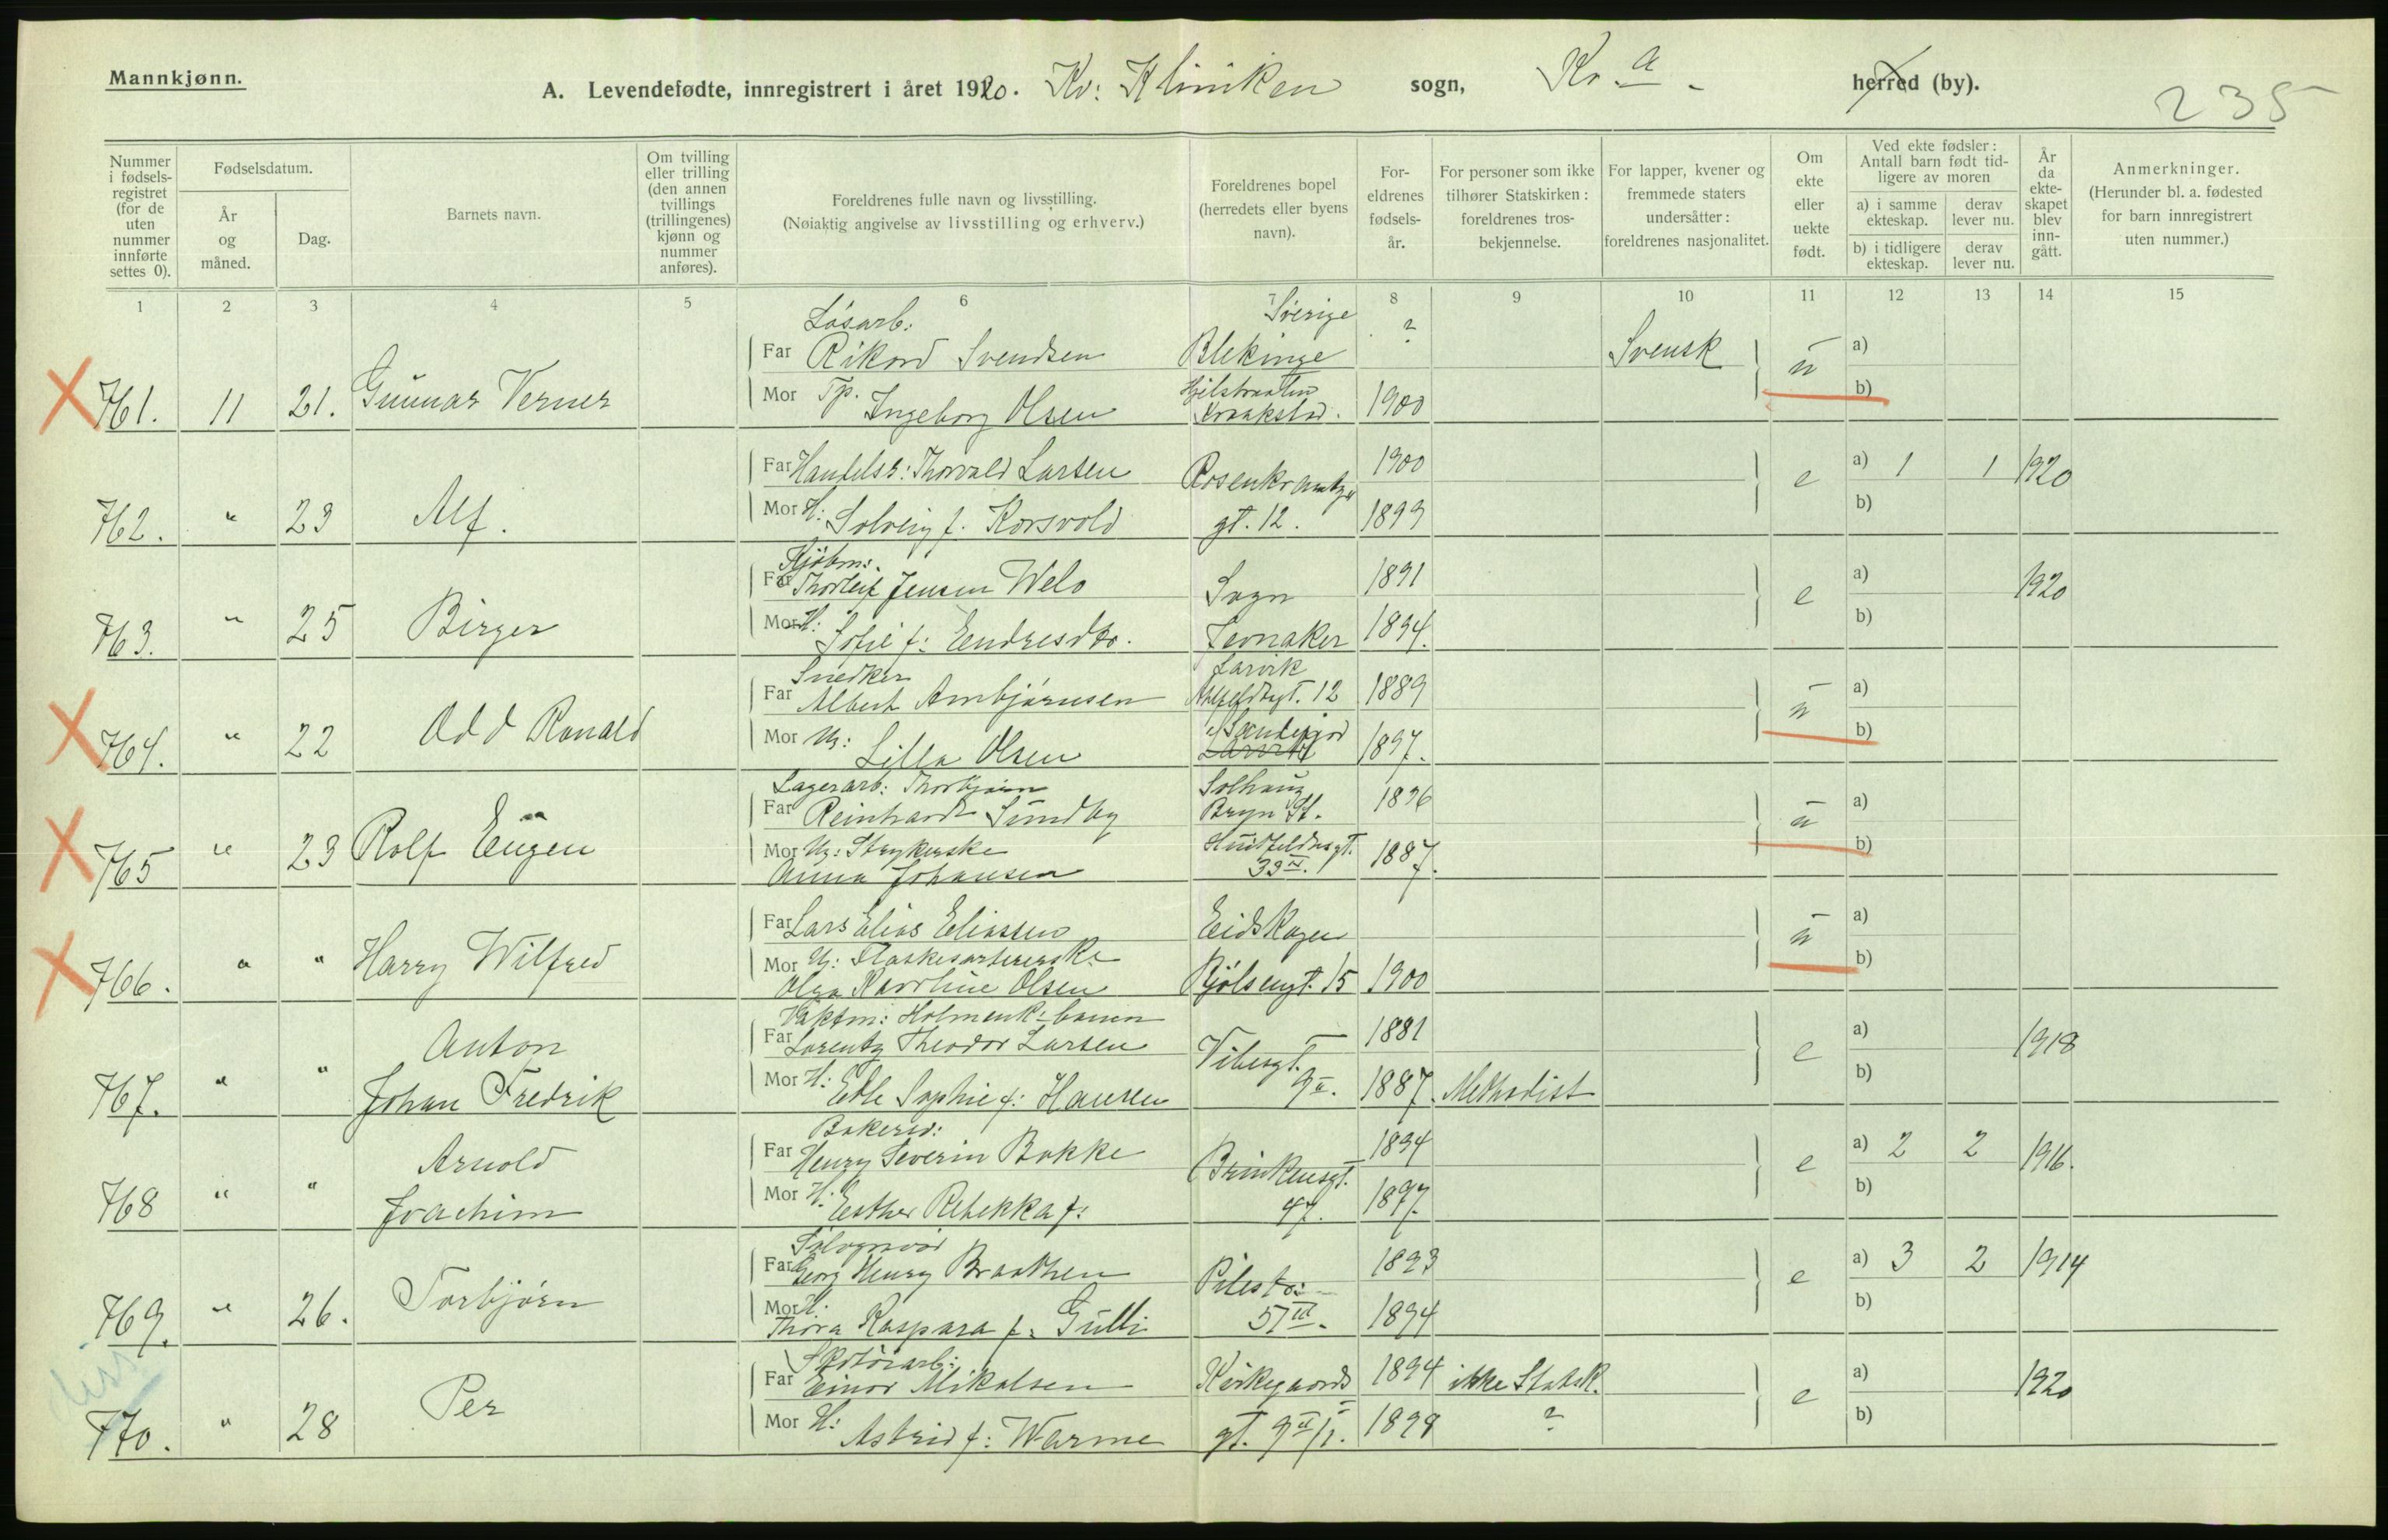 Mannkjønn.
A. Levendefødte, innregistrert i året 1920. Kv: Kliniken sogn, Kr.a. herred (by).
235
Nummer i fødsels-registret (for de uten nummer innførte settes 0).
Fødselsdatum.
År og måned.
Dag.
Barnets navn.
Om tvilling eller trilling (den annen tvillings (trillingenes) kjønn og nummer anføres).
Foreldrenes fulle navn og livsstilling.
(Nøiaktig angivelse av livsstilling og erhverv.)
Foreldrenes bopel (herredets eller byens navn).
For-eldrenes fødsels-år.
For personer som ikke tilhører Statskirken: foreldrenes tros-bekjennelse.
For lapper, kvener og fremmede staters undersåtter: foreldrenes nasjonalitet.
Om ekte eller uekte født.
Ved ekte fødsler: Antall barn født tid-ligere av moren
a) i samme ekteskap.
derav lever nu.
b) i tidligere ekteskap.
derav lever nu.
År da ekte-skapet blev inn-gått.
Anmerkninger.
(Herunder bl. a. fødested for barn innregistrert uten nummer.)
1 2 3 4 5 6 7 8 9 10 11 12 13 14 15
Løsarb: Sverige
Far Rikard Svendsen Blekinge ? Svensk a)
761. 11 21. Gunnar Verner Mor Tp. Ingeborg Olsen Kraakstad. 1900 u b)
Far Handelsr: Thorvald Larsen Rosenkrantz 1900 a) 1 1 1920
762. " 23 Alf. Mor H: Solveig f. Korsvold gt. 12. 1899 e b)
Kjøbm:
Far Thorleif Jensen Welo Sogn 1891 a) 1920
763. " 25 Birger Mor H: Sofie f: Endresdtr. Jevnaker 1894. e b)
Snedker Larvik
Far Albert Arnbjørnsen 12 1889 a)
764. " 22 Odd Ronald Mor Ug: Lilla Olsen Sandefjord Larvik 1897. u b)
Lagerarb: Thorbjørn Solhaug
Far Reinhardt Sundby Bryn St. 1896 a)
765 " 23 Rolf Eugen Mor Ug: Strykerske Huitfeldtsgt. 1887. u b)
Anna Johansen 33 IV.
Far Lars Elias Eliassen Eidskogen a)
766. " " Harry Wilfred Mor U: Flaskesortererske u b)
Olga Karoline Olsen Bjølsengt. 15 1900
Vaktm: Holmenk: banen
Far Lorentz Theodor Larsen Vibesgt. 1881 a) 1918
767. " " Anton Johan Fredrik Mor H: Edle Sophie f: Hansen 9 II. 1887. Methodist e b)
Bakersv:
Far Henry Severin Bakke Brinkensgt. 1894 a) 2 2 1916.
768 " " Arnold Joachim Mor H: Esther Rebekka f: 47. 1897. e b)
Far Georg Henry Braathen Pilestr: 1893 a) 3 2 1914
769. " 26. Torbjørn Mor H: Thora Kaspara f: Gulli 57 III. 1894 e b)
Skotøiarb:
Far Einar Mikalsen Kirkegaards 1894 ikke Statsk. a) 1920
770. " 28 Per Mor H: Astrid f: Warme gt. 9 II/I. 1899 ? e b)